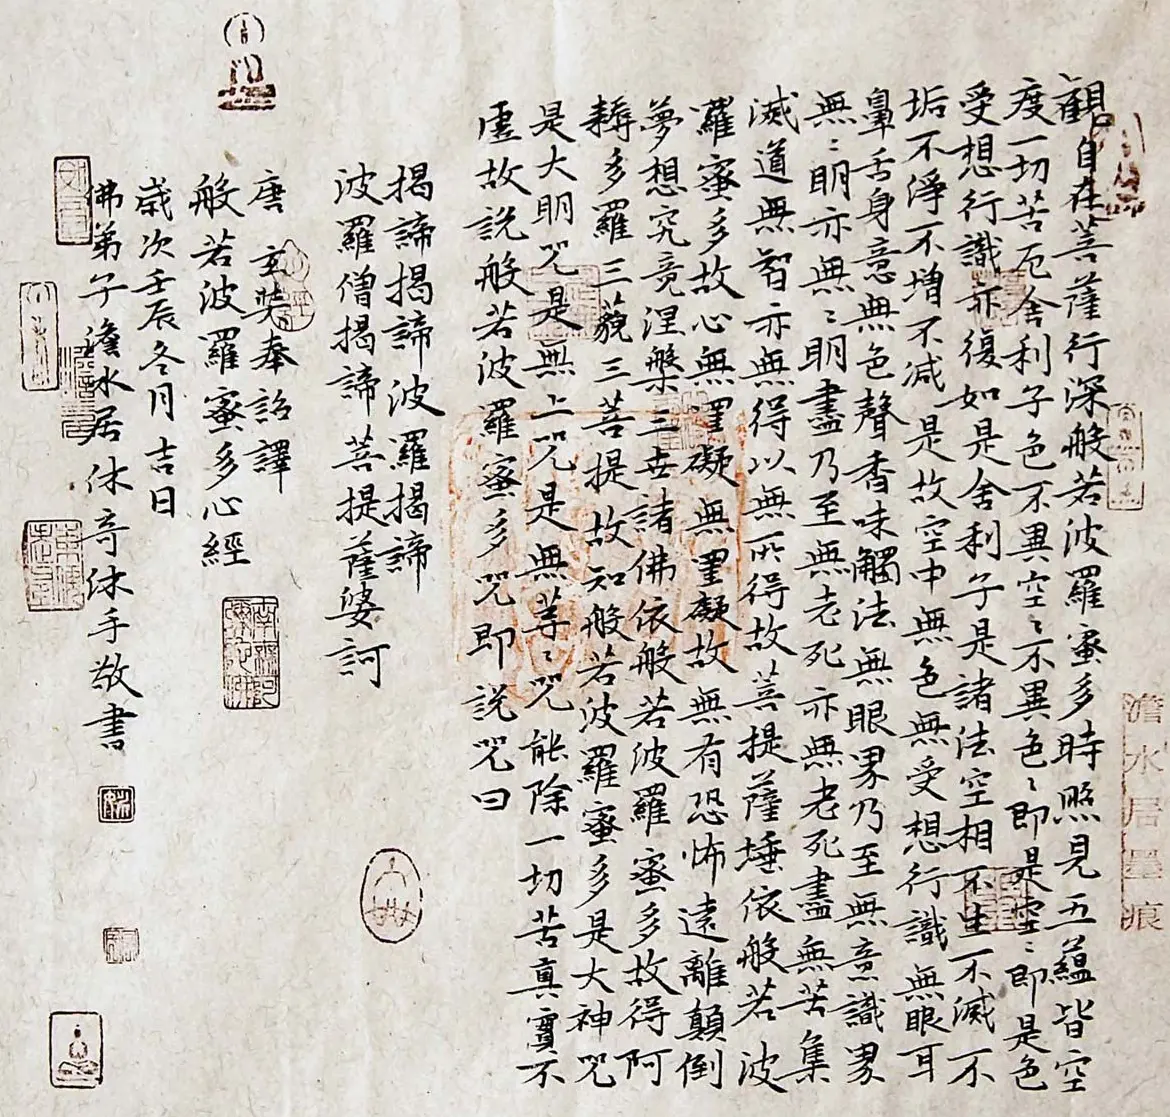 澹水居墨痕
觀自在菩薩行深般若波羅蜜多時照見五蘊皆空
度一切苦厄舍利子色不異空〻不異色〻即是空〻即是色
受想行識亦復如是舍利子是諸法空相不生不滅不
垢不淨不增不减是故空中無色無受想行識無眼耳
鼻舌身意無色聲香味觸法無眼界乃至無意識界
無〻明亦無〻明盡乃至無老死亦無老死盡無苦集
滅道無智亦無得以無所得故菩提薩埵依般若波
羅蜜多故心無罣礙無罣礙故無有恐怖遠離顛倒
夢想究竟涅槃三世諸佛依般若波羅蜜多故得阿
耨多羅三藐三菩提故知般若波羅蜜多是大神咒
是大明咒是無上咒是無等〻咒能除一切苦真實不
虛故說般若波羅蜜多咒即說咒曰
揭諦揭諦波羅揭諦
波羅僧揭諦菩提薩婆訶
唐 玄奘奉詔譯
般若波羅蜜多心經
歲次壬辰冬月吉日
佛弟子澹水居休奇休手敬書